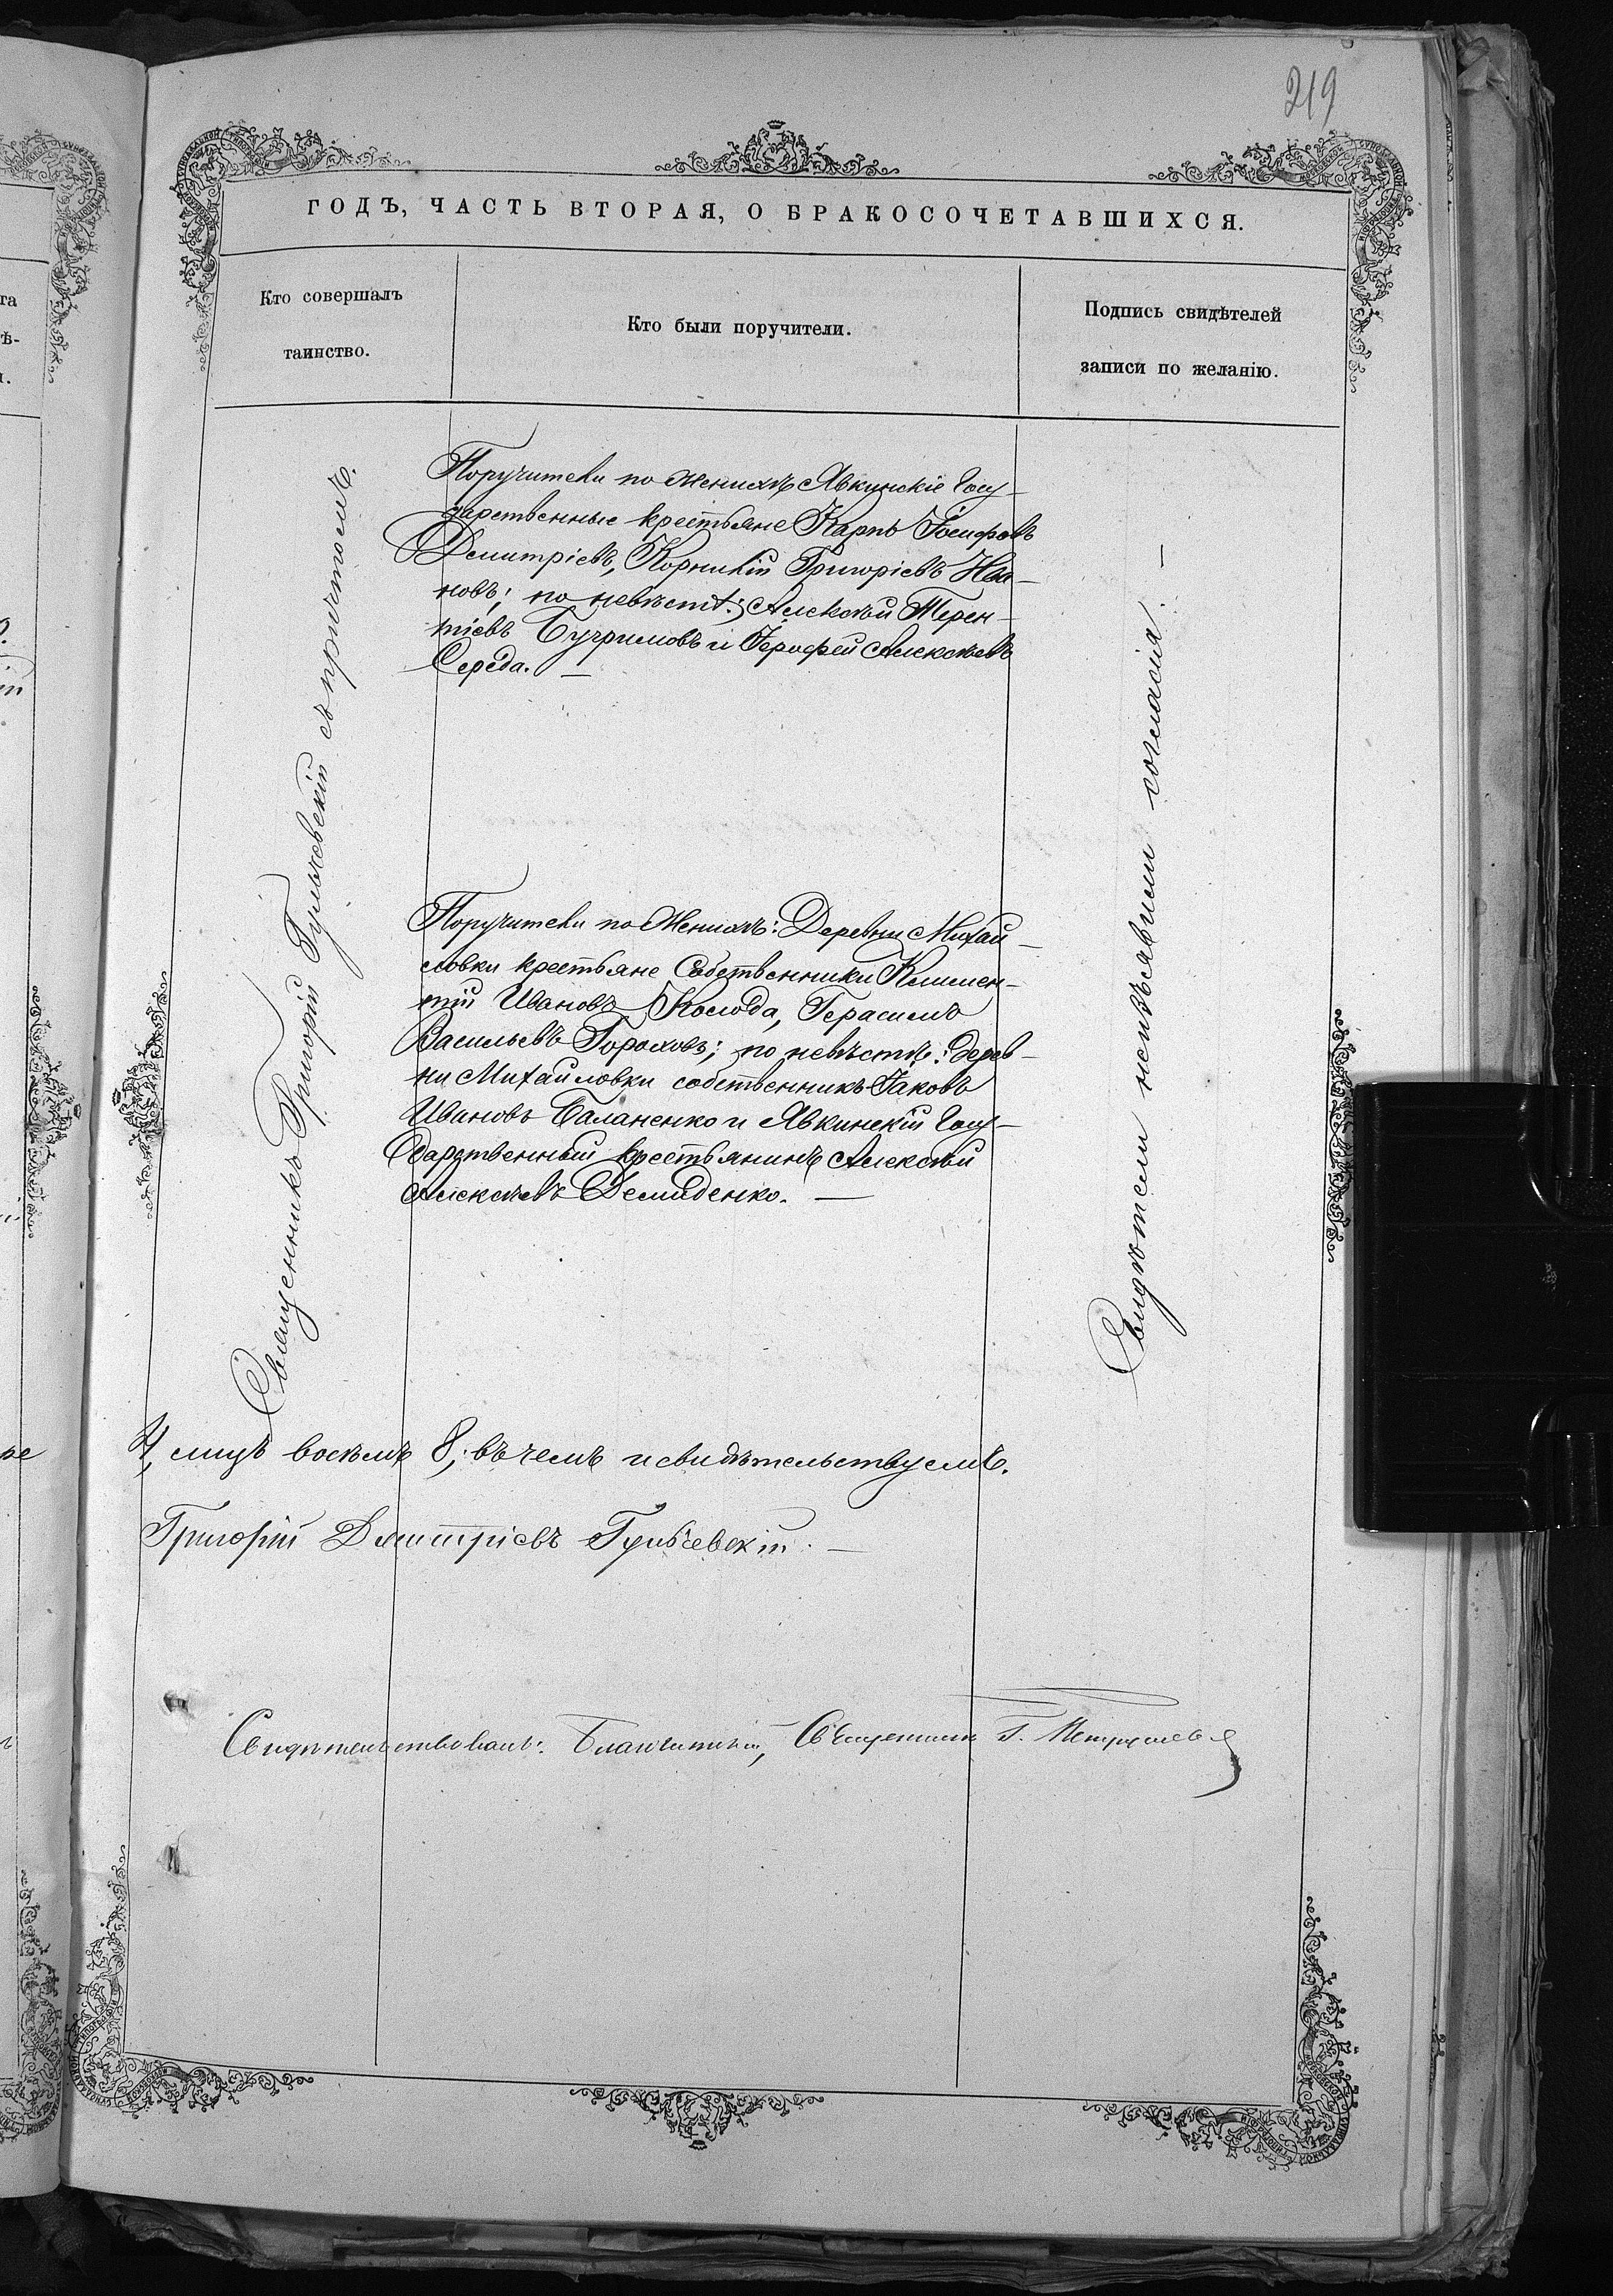 219
ГОДЪ, ЧАСТЬ ВТОРАЯ, О БРАКОСОЧЕТАВШИХСЯ.
Кто совершалъ
таинство.
Кто были поручители.
Подпись свидѣтелей
записи по желанію.
Священникъ Григорій Гульчевскій съ причтомъ.
Поручители по женихѣ Явкинскіе Госу-
дарственные крестьяне Карпъ Іосифовъ
Димитріевъ, Корнилій Григорієвъ
новъ; по невѣстѣ: Алексѣй Терен-
тіевъ Бугримовъ и Іерофей Алексѣевъ
Середа. —
Поручители по женихѣ: Деревни Михай-
ловки крестьяне Собственники Климен-
тій Ивановъ Колода, Герасимъ
Васильевъ Гороховъ; по невѣстѣ: дерев-
ни Михайловки собственникъ Іаковъ
Ивановъ Баланенко и Явкинскій Госу-
дарственный крестьянинъ Алексѣй
Алексѣевъ Демиденко. —
Свидѣтели неизъявили согласія. —
4, лицъ восѣмъ 8; въ чемъ и свидѣтельствуемъ.
Григорій Димитріевъ Гульчевскій. —
Свидѣтельствовалъ: Благочинный, Священникъ